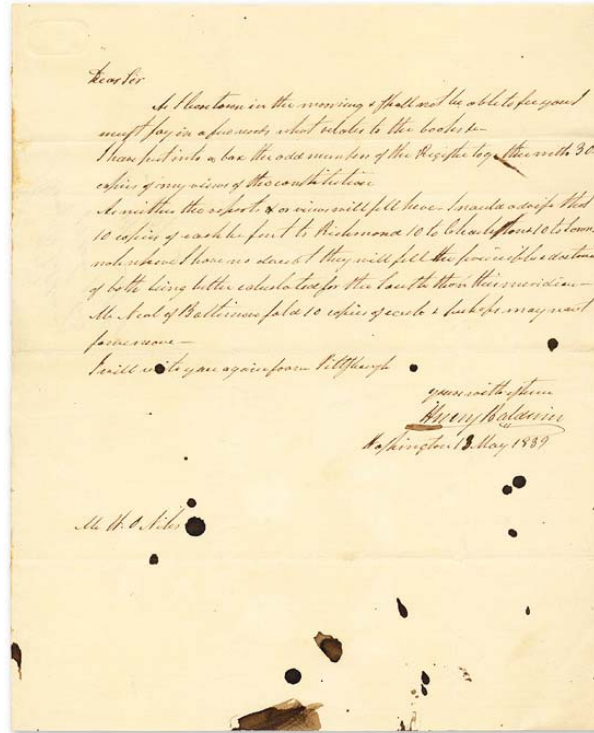 Dear Sir
As I leave town in the morning & shall not be able to see you I
must say in a few words what relates to the books &c
I have put into a box the odd numbers of the Register together with 30
copies of my views of the constitution
As neither the reports or views will sell here I would advise that
10 copies of each be sent to Richmond 10 to Charleston & 10 to
I have no doubt they will sell the principles & doctrines
of both being better calculated for the South than this meridian —
Mr Neal of Baltimore sold 10 copies of each & perhaps may want
some more —
I will write you again from Pittsburgh
yours with esteem
Henry Baldwin
Washington 13 May 1839
Mr W. O. Niles